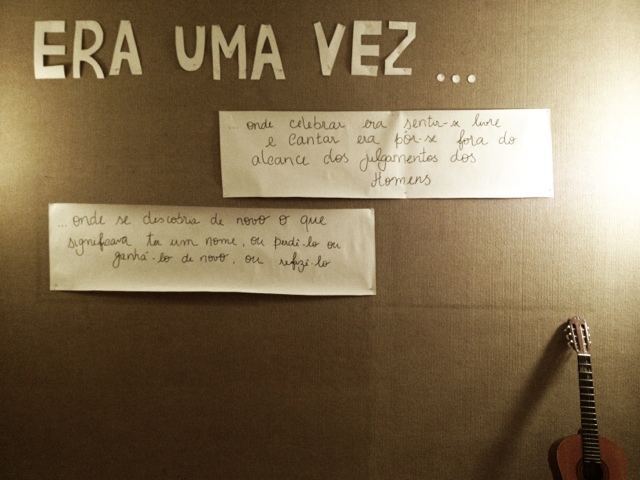 ERA UMA VEZ ...
onde celebrar era sentir-se livre
e cantar era pôr-se fora do
alcance dos julgamentos dos
Homens
... onde se descobria de novo o que
significava ter um nome, ou perdê-lo ou
ganhá-lo de novo, ou refazê-lo